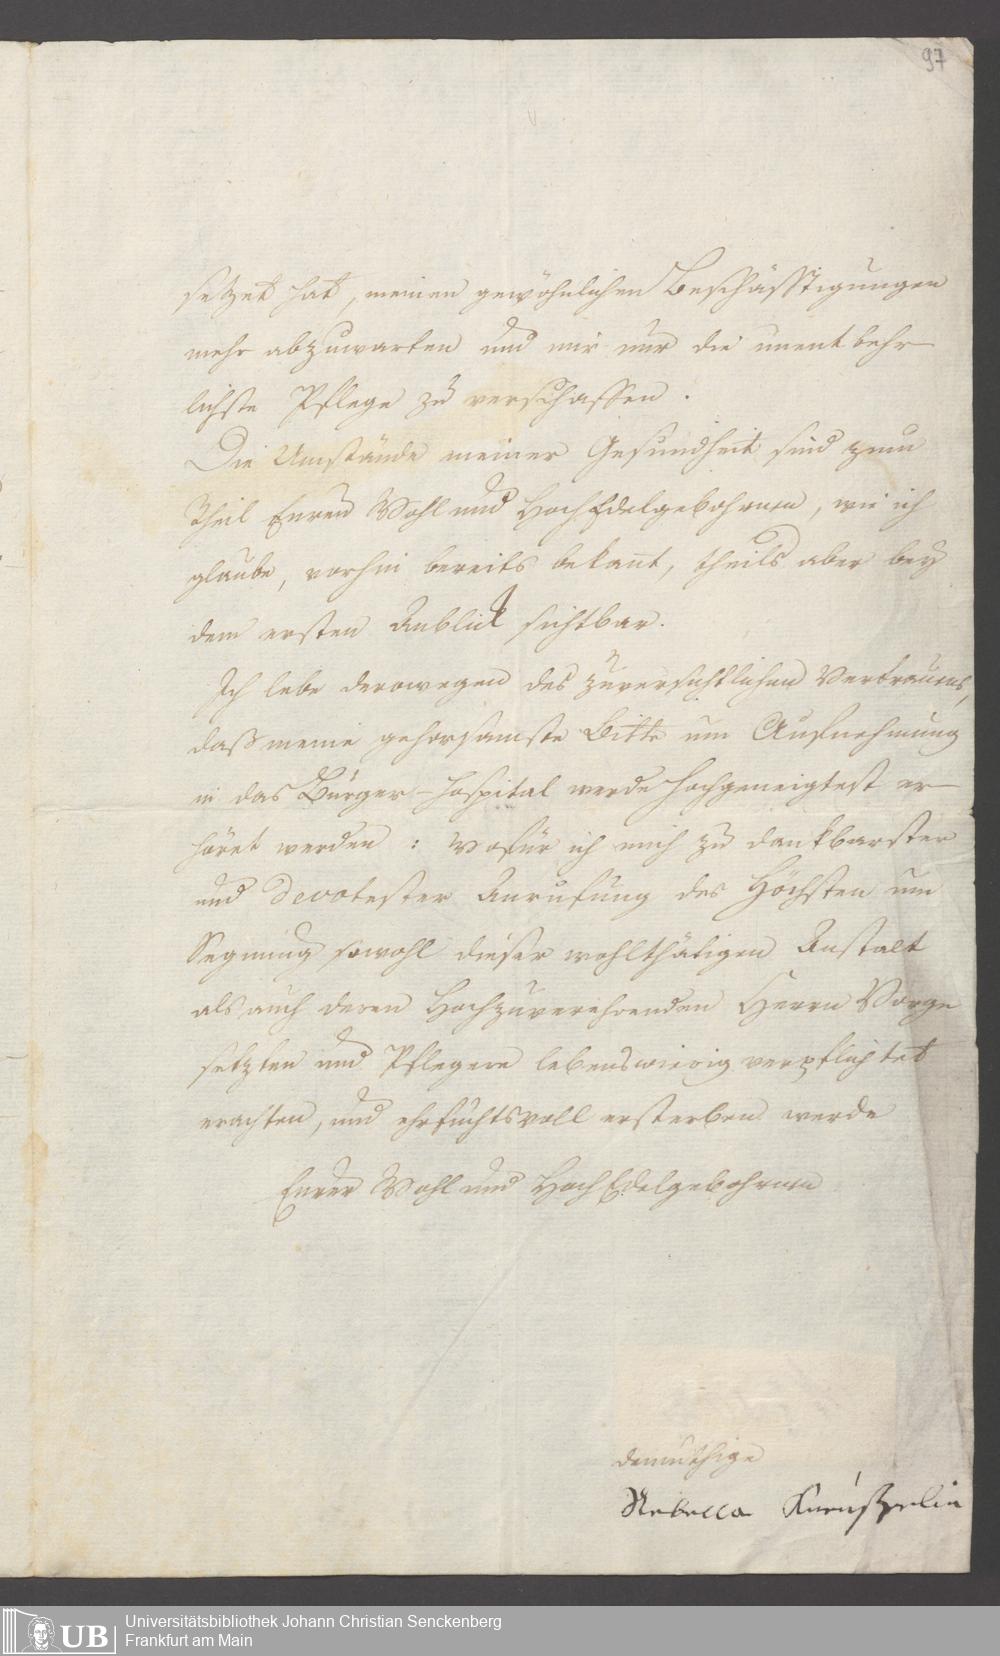 97
setzet hat, meinen gewöhnlichen Beschäfftigungen
mehr abzuwarten und mir nur die unentbehr-
lichste Pflege zu verschaffen.
Die Umstände meiner Gesundheit sind zum
Theil Euren Wohl und HochEdelgebohrnen, wie ich
glaube, vorhin bereits bekant, theils aber bey
dem ersten Anblick sichtbar.
Ich lebe derowegen des zuversichtlichen Vertrauens,
daß meine gehorsamste Bitte um Aufnehmung
in das Bürger-Hospital werde hochgeneigtest er-
höret werden: wofür ich mich zu dankbarster
und devotester Anrufung des Höchsten um
Segnung sowohl dieser wohlthätigen Anstalt
als auch deren Hochzuverehrenden Herrn Vorge
setzten und Pflegern lebenswierig verpflichtet
erachten, und ehrfurchtsvoll ersterben werde
Eurer Wohl und HochEdelgebohrnen
demüthige
Rebecca
UB
Universitätsbibliothek Johann Christian Senckenberg
Frankfurt am Main